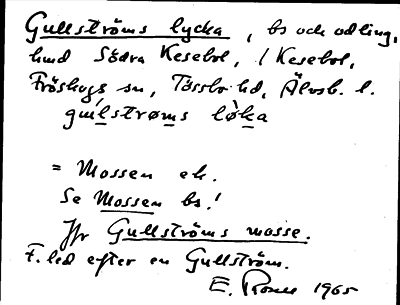 Gullströms lycka, bs och odling,
hmd Södra Kesebol, / Kesebol,
Fröskogs sn, Tössbo hd, Älvsb. l.
gul̀strøms lø̀ka
= Mossen ek.
Se Mossen bs.!
Jfr Gullströms mosse.
F.led efter en Gullström.
E. 1965